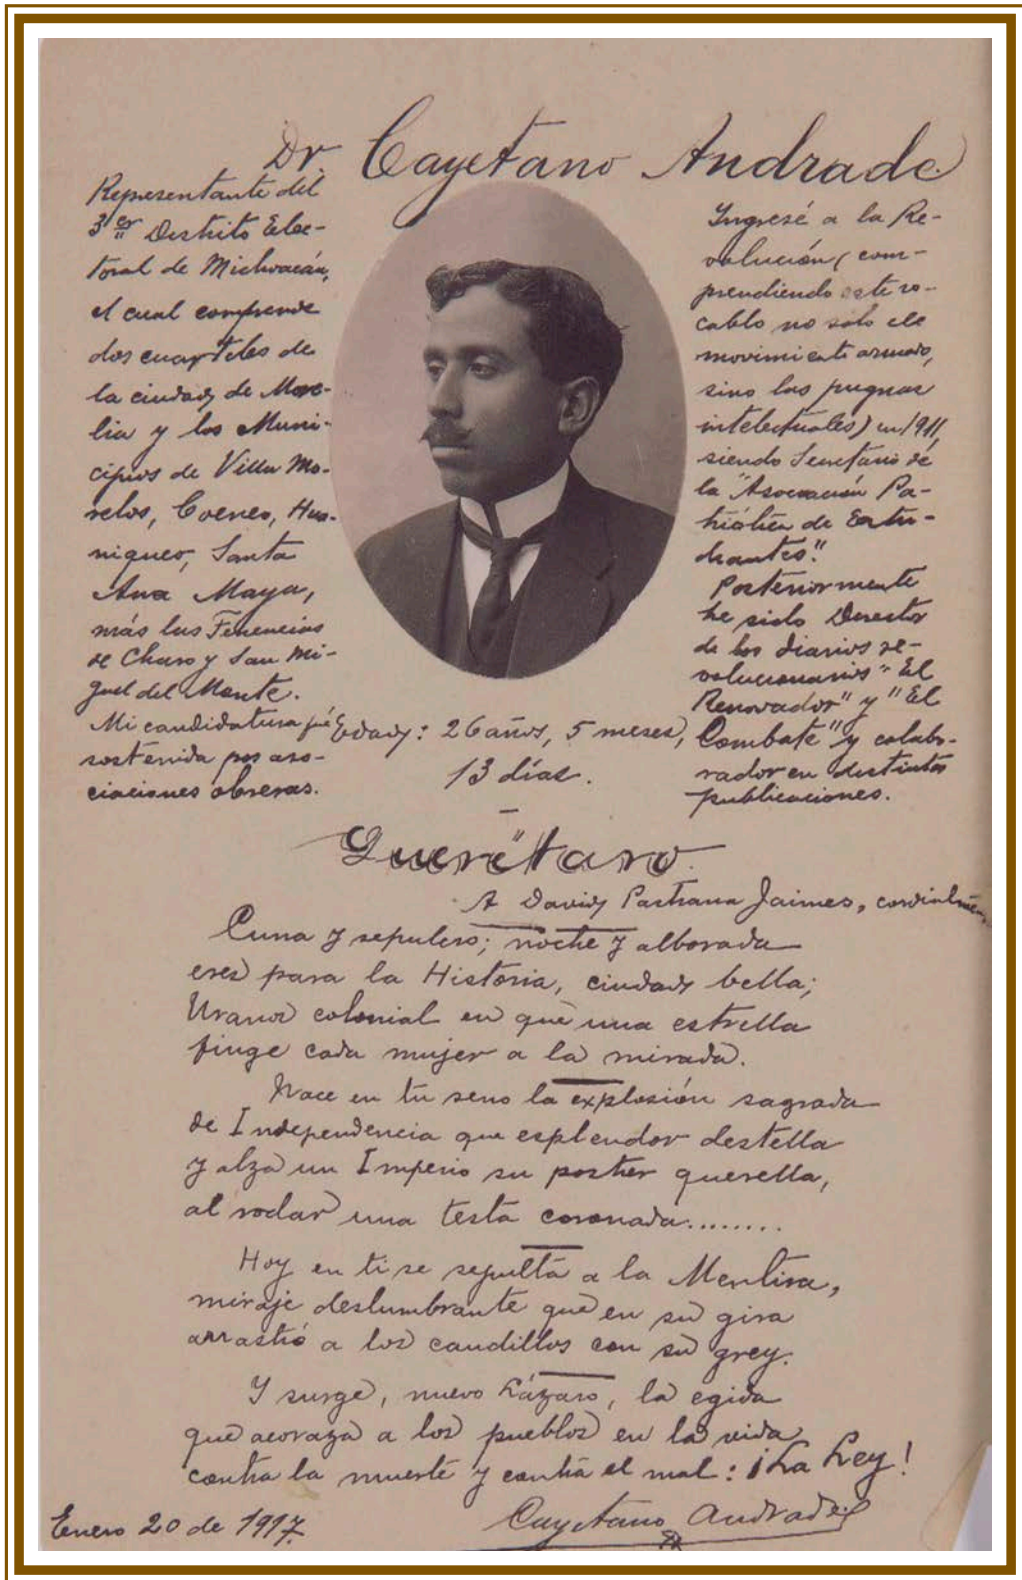 Dr. Cayetano Andrade.
Representante del
3er Distrito Elec-
toral de Michoacán,
el cual comprende
dos cuarteles de
la ciudad de More-
lia y los Muni-
cipios de Villa Mo-
relos, Coeneo, Hua-
niqueo, Santa
Ana Maya,
más las Tenencias
de Charo y San Mi-
guel del Monte.
Mi candidatura fué
sostenida por aso-
ciaciones obreras.
Edad: 26 años, 5 meses,
13 días.
Ingresé a la Re-
volución (com-
prendiendo este vo-
cablo no solo el
movimiento armado,
sino las pugnas
intelectuales) en 1911,
siendo Secretario de
la "Asociación Pa-
triótica de Estu-
diantes."
Posteriormente
he sido Director
de los diarios re-
volucionarios "El
Renovador" y "El
Combate" y colabo-
rador en distintas
publicaciones.
Querétaro.
A David Pastrana Jaimes, cordialmen
Cuna y sepulcro; noche y alborada
eres para la Historia, ciudad bella;
Uranos colonial en que una estrella
finge cada mujer a la mirada.
Nace en tu seno la explosión sagrada
de Independencia que esplendor destella
y alza un Imperio su postrer querella,
al rodar una testa coronada........
Hoy en ti se sepulta a la Mentira,
miraje deslumbrante que en su gira
arrastró a los caudillos con su grey.
Y surge, nuevo Lázaro, la egida
que acoraza a los pueblos en la vida
contra la muerte y contra el mal: ¡La Ley!
Cayetano Andrade
Enero 20 de 1917.